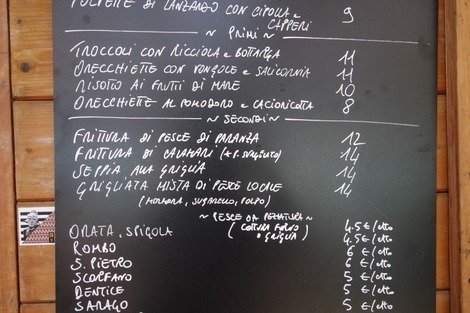 POLPETTE DI LANZARDO CON CIPOLLA E CAPPERI 9
~ PRIMI ~
TROCCOLI CON RICCIOLA E BOTTARGA 11
ORECCHIETTE CON VONGOLE E SALICORNIA 11
RISOTTO AI FRUTTI DI MARE 10
ORECCHIETTE AL POMODORO E CACIORICOTTA 8
~ SECONDI ~
FRITTURA DI PESCE DI PARANZA 12
FRITTURA DI CALAMARI 14
SEPPIA ALLA GRIGLIA 14
GRIGLIATA MISTA DI PESCE LOCALE 14
(MORMORA, SUGARELLO, POLPO)
~ PESCE DA PEZZATURA ~
(COTTURA FORNO O GRIGLIA)
ORATA, SPIGOLA 4.5 €/etto
ROMBO 4.5 €/etto
S. PIETRO 6 €/etto
SCORFANO 6 €/etto
DENTICE 5 €/etto
SARAGO 5 €/etto
5 €/etto